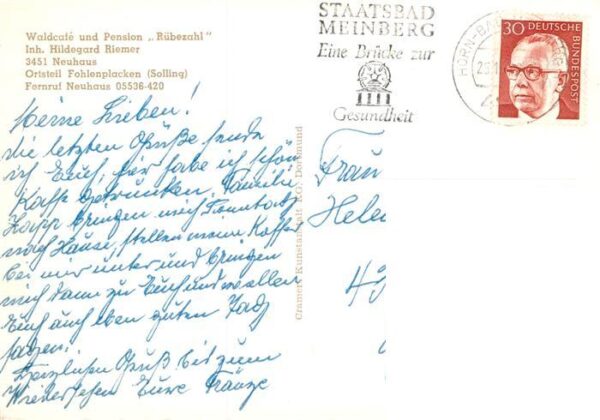 Waldcafé und Pension „Rübezahl"
Inh. Hildegard Riemer
3451 Neuhaus
Ortsteil Fohlenplacken (Solling)
Fernruf Neuhaus 05536-420
Meine Lieben!
Die letzten Grüße sende
ich Euch, hier habe ich schön
Kaffe getrunken. Familie
Kapp bringen mich Sonntag
nach Hause, stellen meine Koffer
bei mir unter und bringen
mich dann zu Euch und wollen
Euch auch eben guten Tag
sagen.
Herzlichen Gruß bis zum
Wiedersehen Eure Fränze
Cramers Kunstanstalt KG. Dortmund
STAATSBAD
MEINBERG
Eine Brücke zur
Gesundheit
HORN-BA
30 DEUTSCHE
BUNDESPOST
Frau
Hele
49